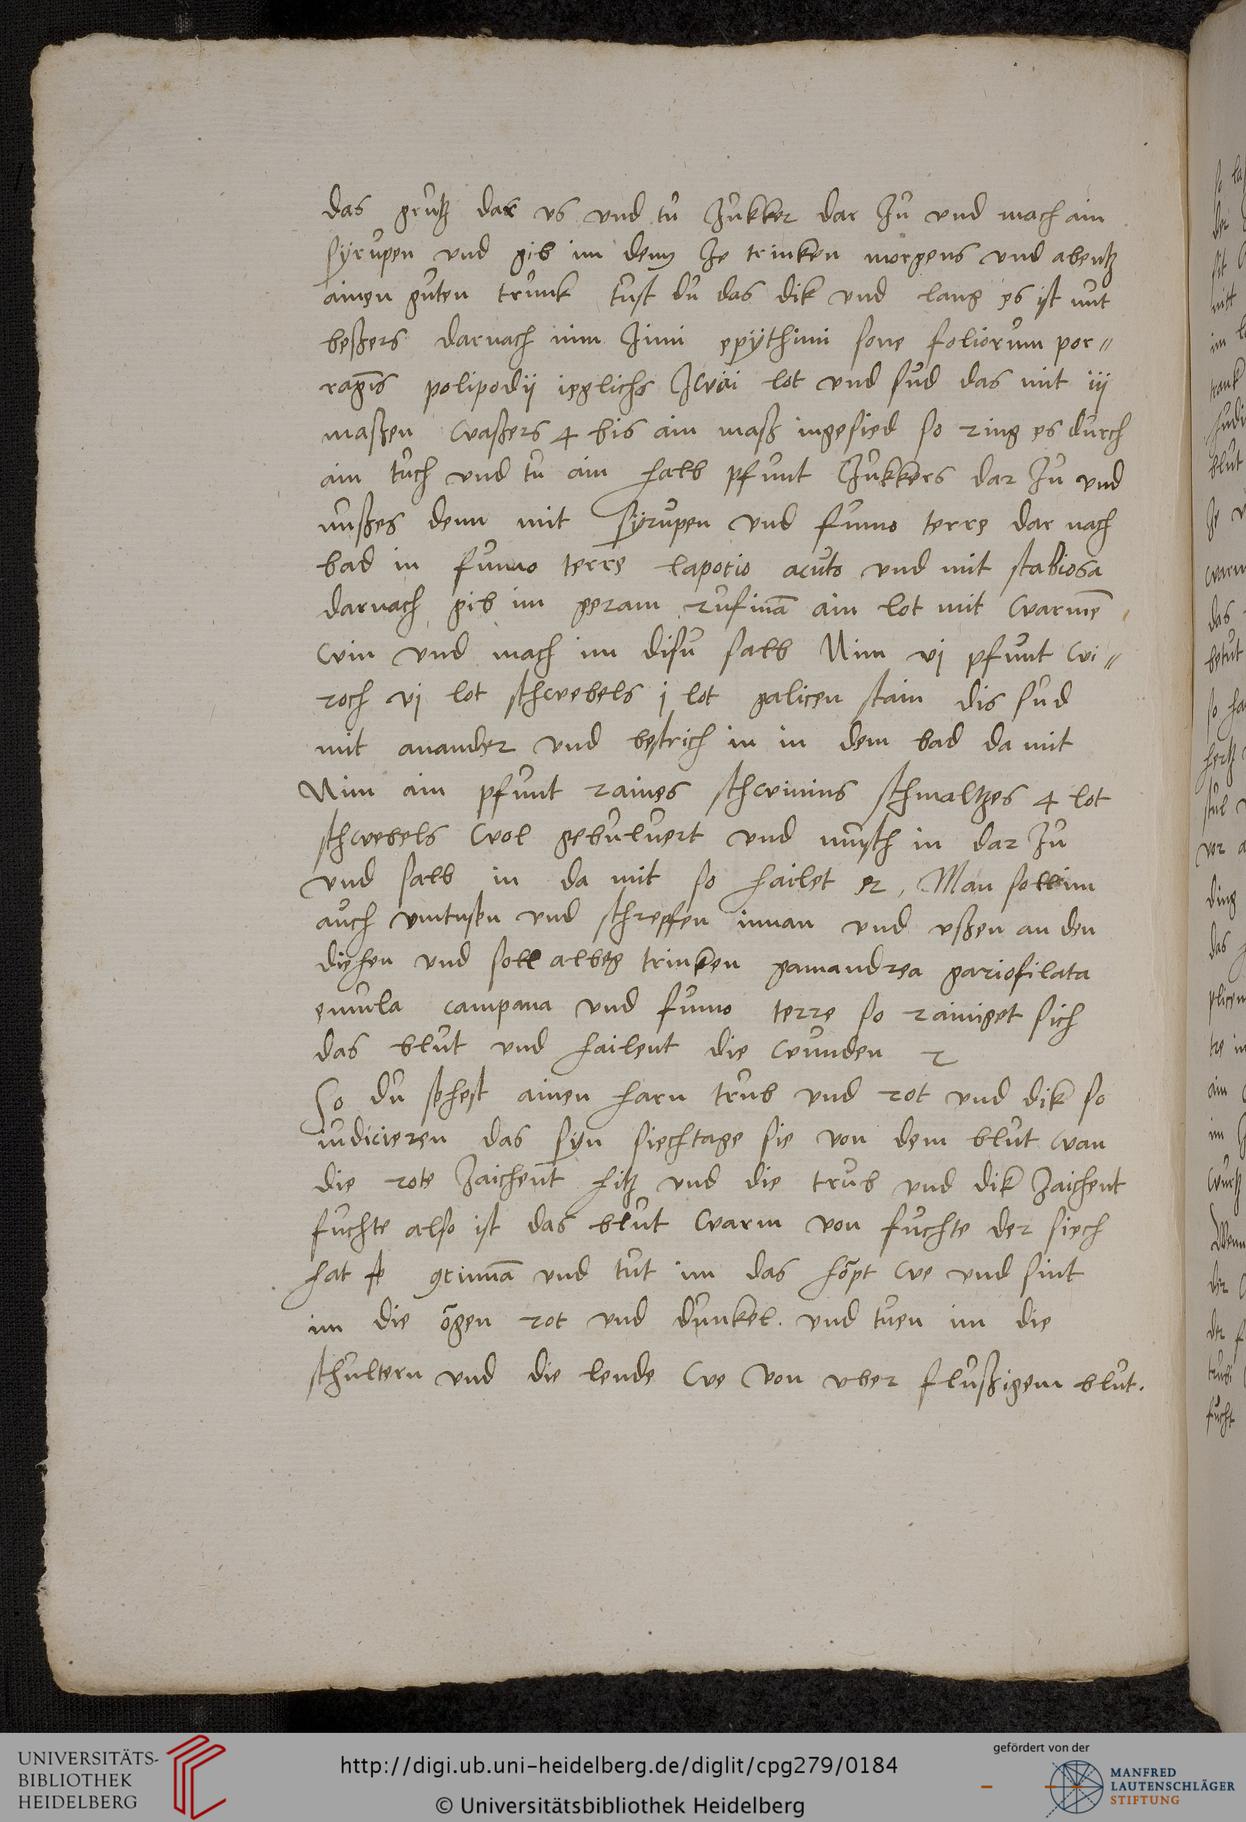 das grütz dar us und tů zukker dar zů und mach ain
syrupen und gib im dem ze trinken morgens und abentz
ainen gůten trunk tůst dů das dik und lang es ist nüt
beßers darnach nim zimi epythimi sene foliorum por=
raginis polipodii ieglichs zwai lot und süd das mit iii
maßen waßers 4 bis ain maß ingesied so ring es durch
ain tůch und tů ain halb pfunt zukkers dar zů und
nüßes denn mit syrupen und fumo terre dar nach
bad in fumo terre lapocio acuto und mit stabiosa
darnach gib im geram rufinā ain lot mit warmē
win und mach im disü salb Nim vj pfunt wi=
roch vj lot schwebels j lot galicen stain dis süd
mit anander und bestrich in in dem bad da mit
Nim ain pfunt raines schwinins schmaltzes 4 lot
schwebels wol gebulvert und müsch in dar zů
und salb in da mit so hailet er, Man soll im
auch ventusen und schrepfen innan und ußen an den
diehen und soll albeg trinken gamandrea gariofilata
enula campana und fumo terre so rainiget sich
das blůt und hailent die wunden
So dů sehest ainen harn trüb und rot und dik so
iudicieren das syn siechtage sie von dem blůt wan
die rote zaichent hitz und die trüb und dik zaichent
füchte also ist das blůt warm von füchte der siech
hat grimmā und tůt im das hopt we und sint
im die ogen rot und dunkel. und tůen im die
schultern und die lende we von uber flußigem blůt.
UNIVERSITÄTS-
BIBLIOTHEK
HEIDELBERG
http://digi.ub.uni-heidelberg.de/diglit/cpg279/0184
© Universitätsbibliothek Heidelberg
gefördert von der
MANFRED
LAUTENSCHLÄGER
STIFTUNG